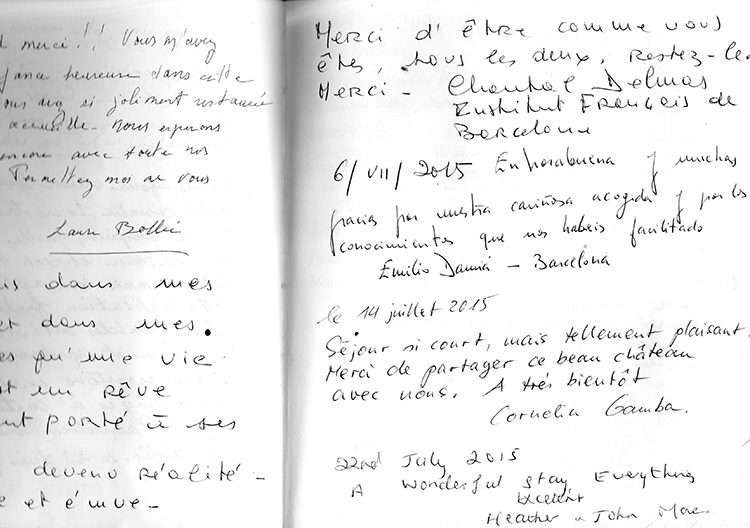 merci !! Vous m'avez
heureuse dans cette
si joliment restaurée
accueille. Nous esperons
encore avec toute nos
Permettez moi de vous
Laure
dans mes
et dans mes.
qu'une vie
un rêve
porté à ses
devenu réalité -
et émue -
Merci d'être comme vous
êtes, tous les deux. Restez-le.
Merci - Chantal Delmas
Institut Français de
Barcelone
6/VII/2015 Enhorabuena y muchas
gracias por vuestra cariñosa acogida y por los
conocimientos que nos habeis facilitado
Emilio - Barcelona
le 14 juillet 2015
Séjour si court, mais tellement plaisant.
Merci de partager ce beau château
avec nous. A très bientôt
Cornelia Gamba.
22nd July 2015
A wonderful stay Everything
Excellent
Heather & John